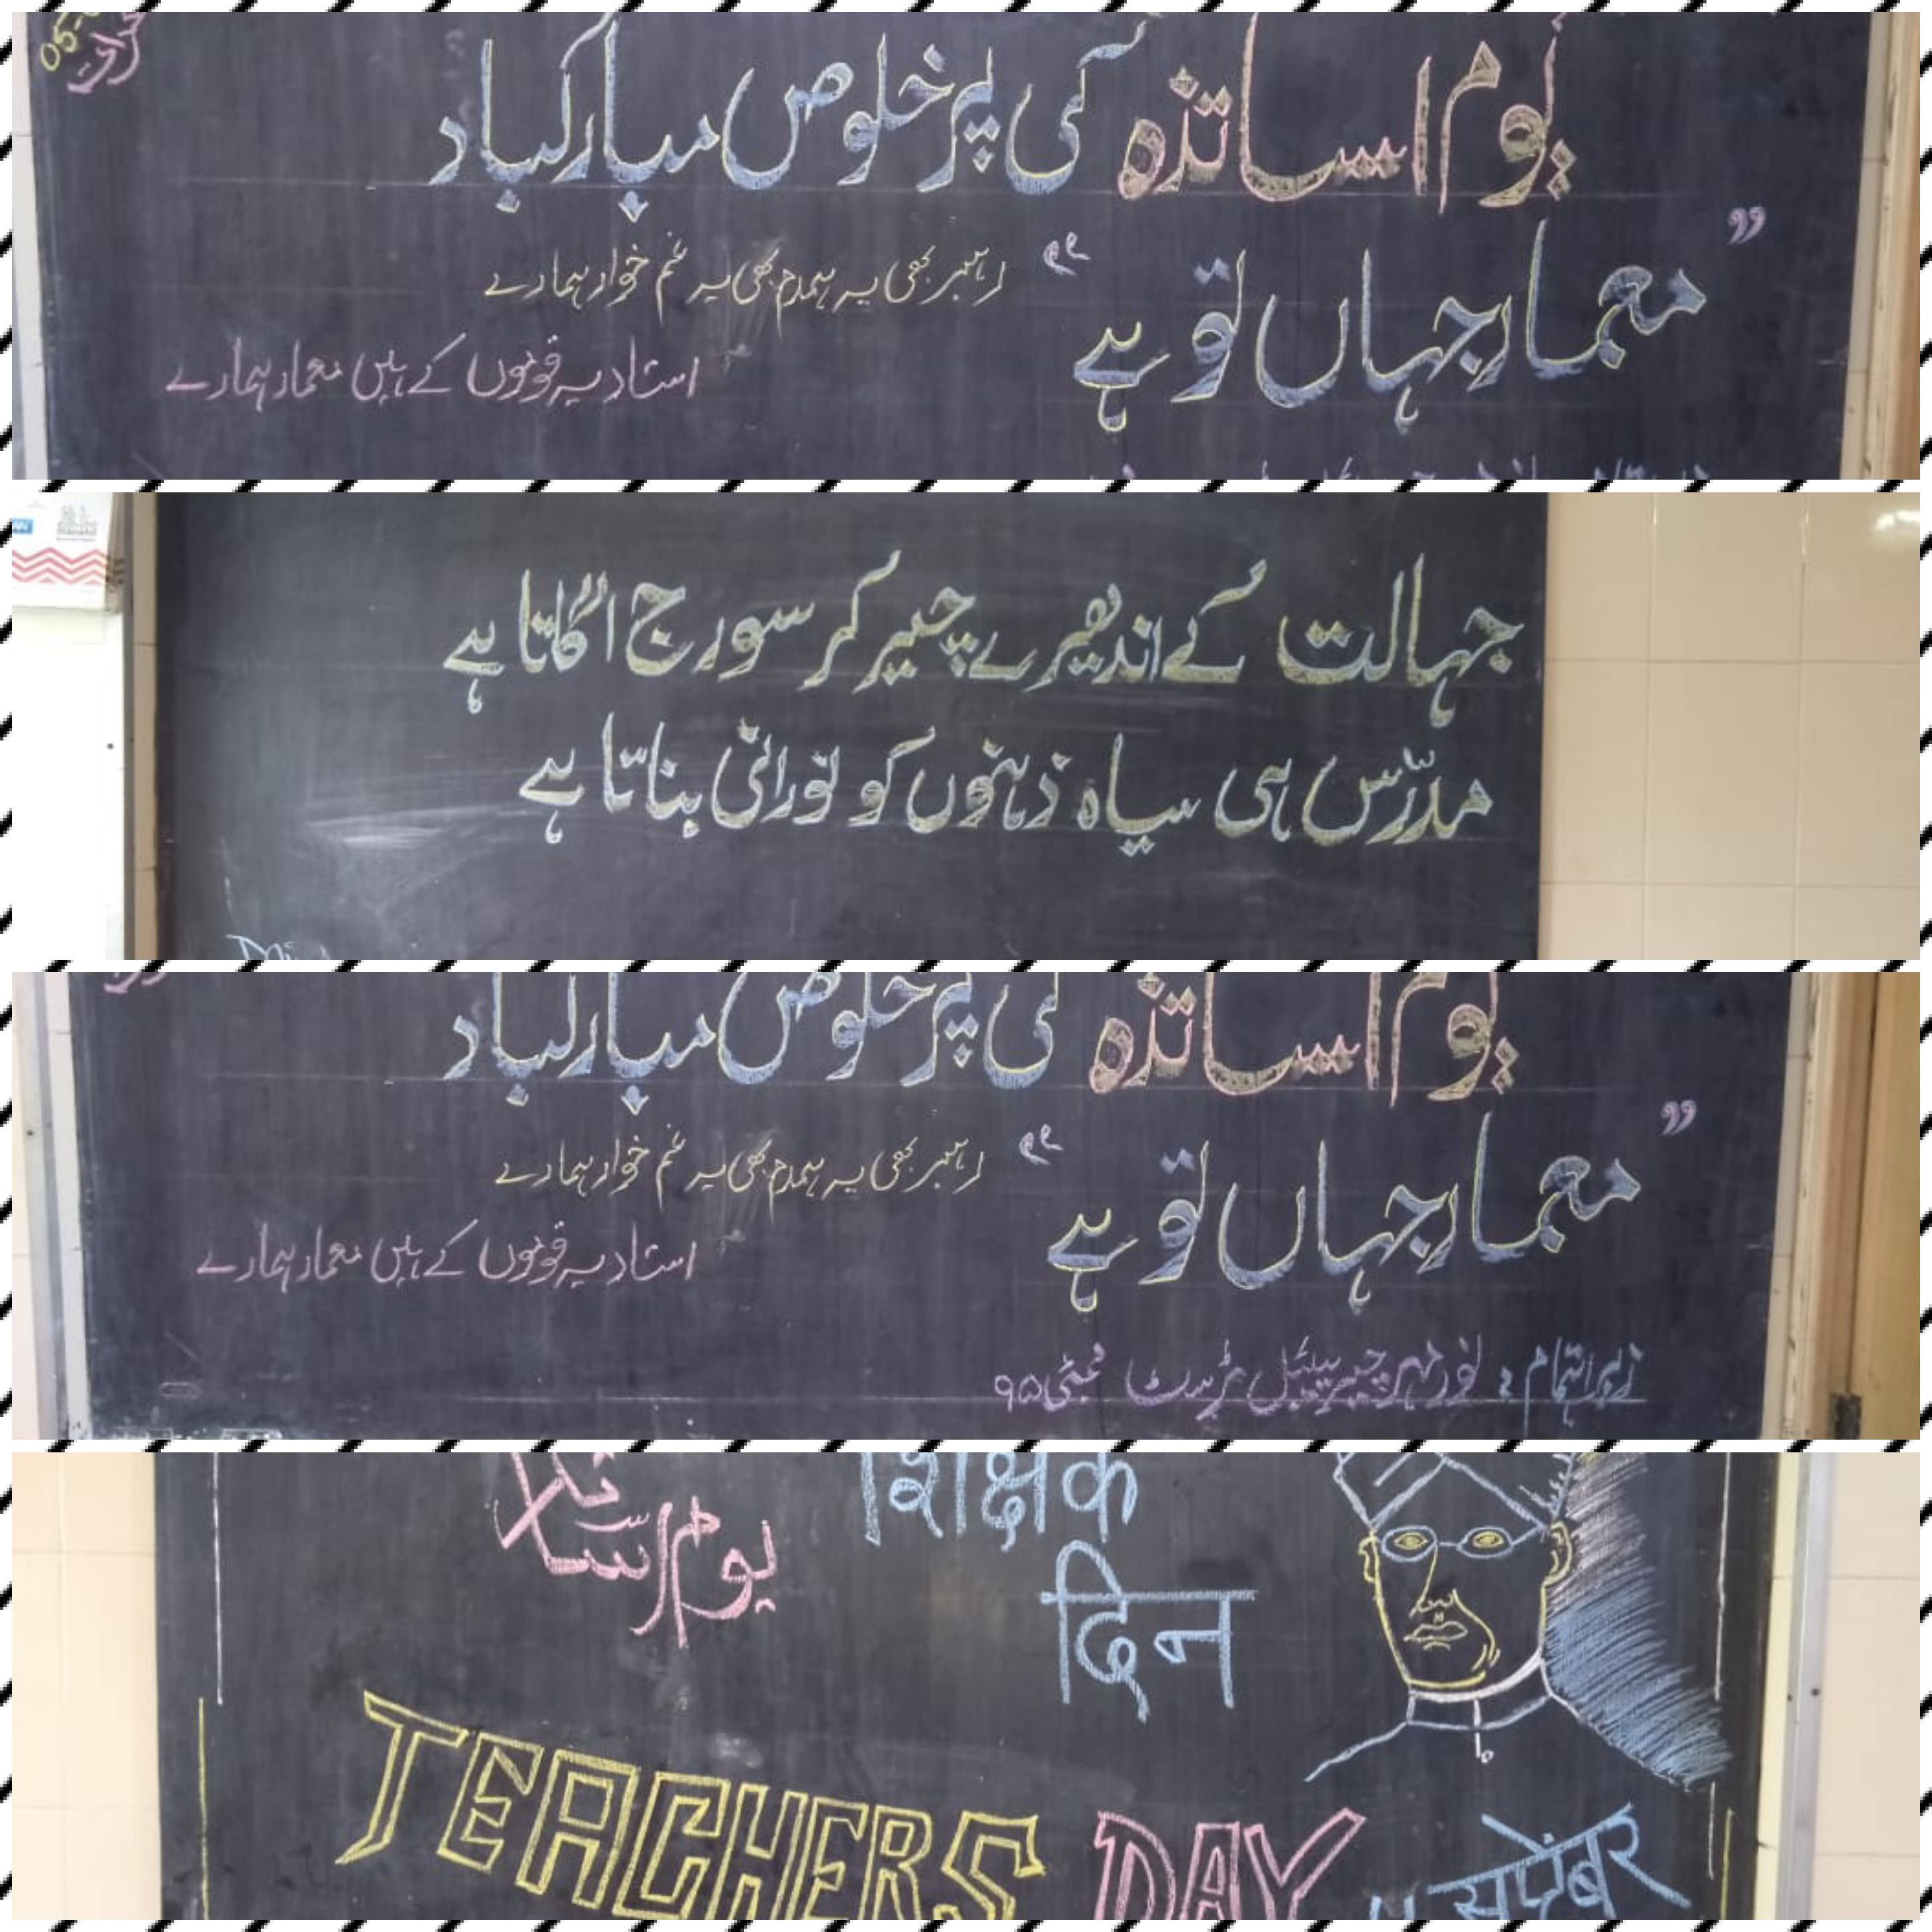 05-
یوم اساتذہ کی پرخلوص مبارکباد
” معمارِ جہاں تو ہے “
رہبر بھی یہ ہمدم بھی یہ غم خوار ہمارے
استاد یہ قوموں کے ہیں معمار ہمارے
جہالت کے اندھیرے چیر کر سورج اگاتا ہے
مدرّس ہی سیاہ ذہنوں کو نورانی بناتا ہے
یوم اساتذہ کی پرخلوص مبارکباد
” معمارِ جہاں تو ہے “
رہبر بھی یہ ہمدم بھی یہ غم خوار ہمارے
استاد یہ قوموں کے ہیں معمار ہمارے
زیر اہتمام : نور مہر چیریٹیبل ٹرسٹ ممبئی ۹۵
یوم اساتذہ
शिक्षक
दिन
TEACHERS DAY
सप्टेंबर